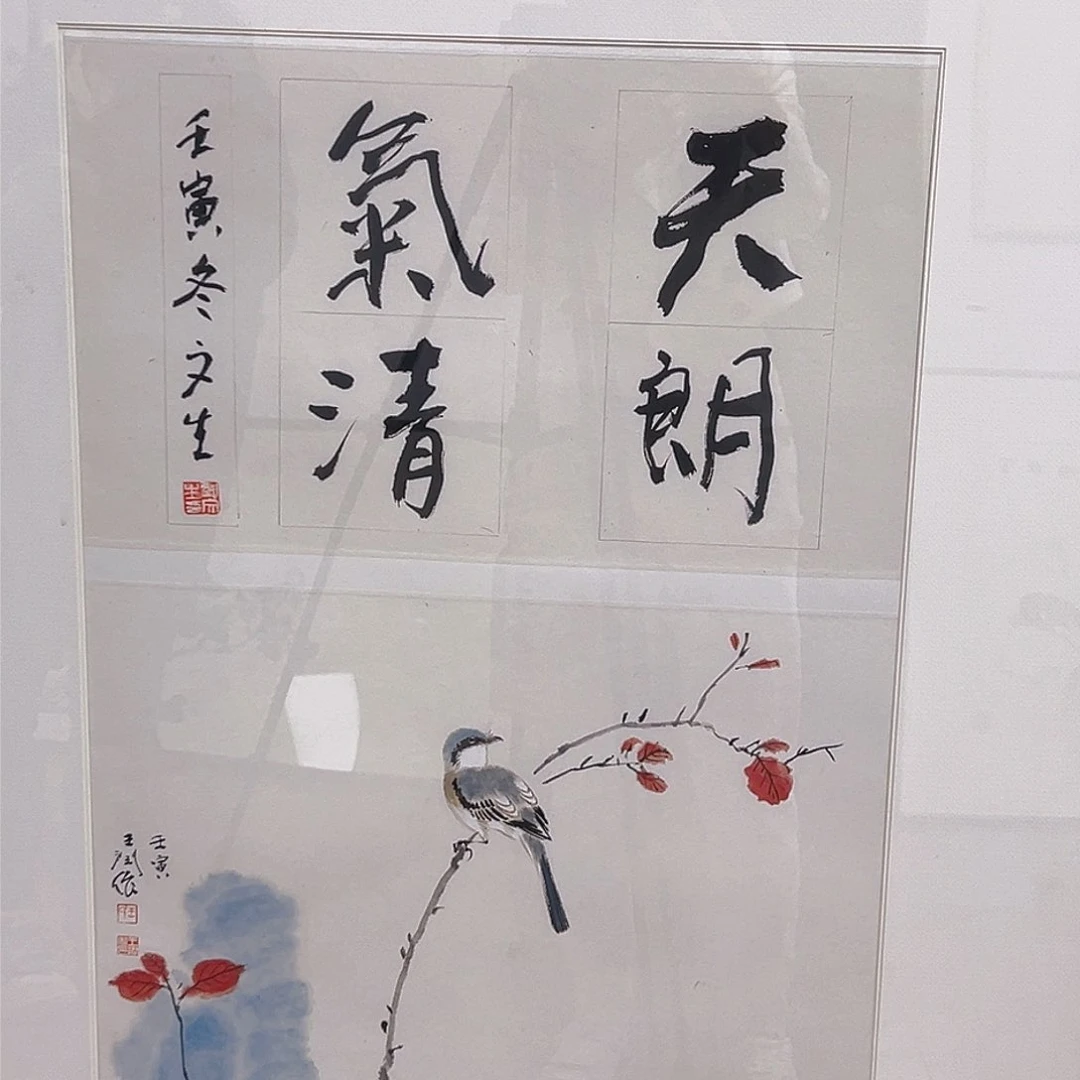 天朗
氣清
壬寅冬文生
壬寅